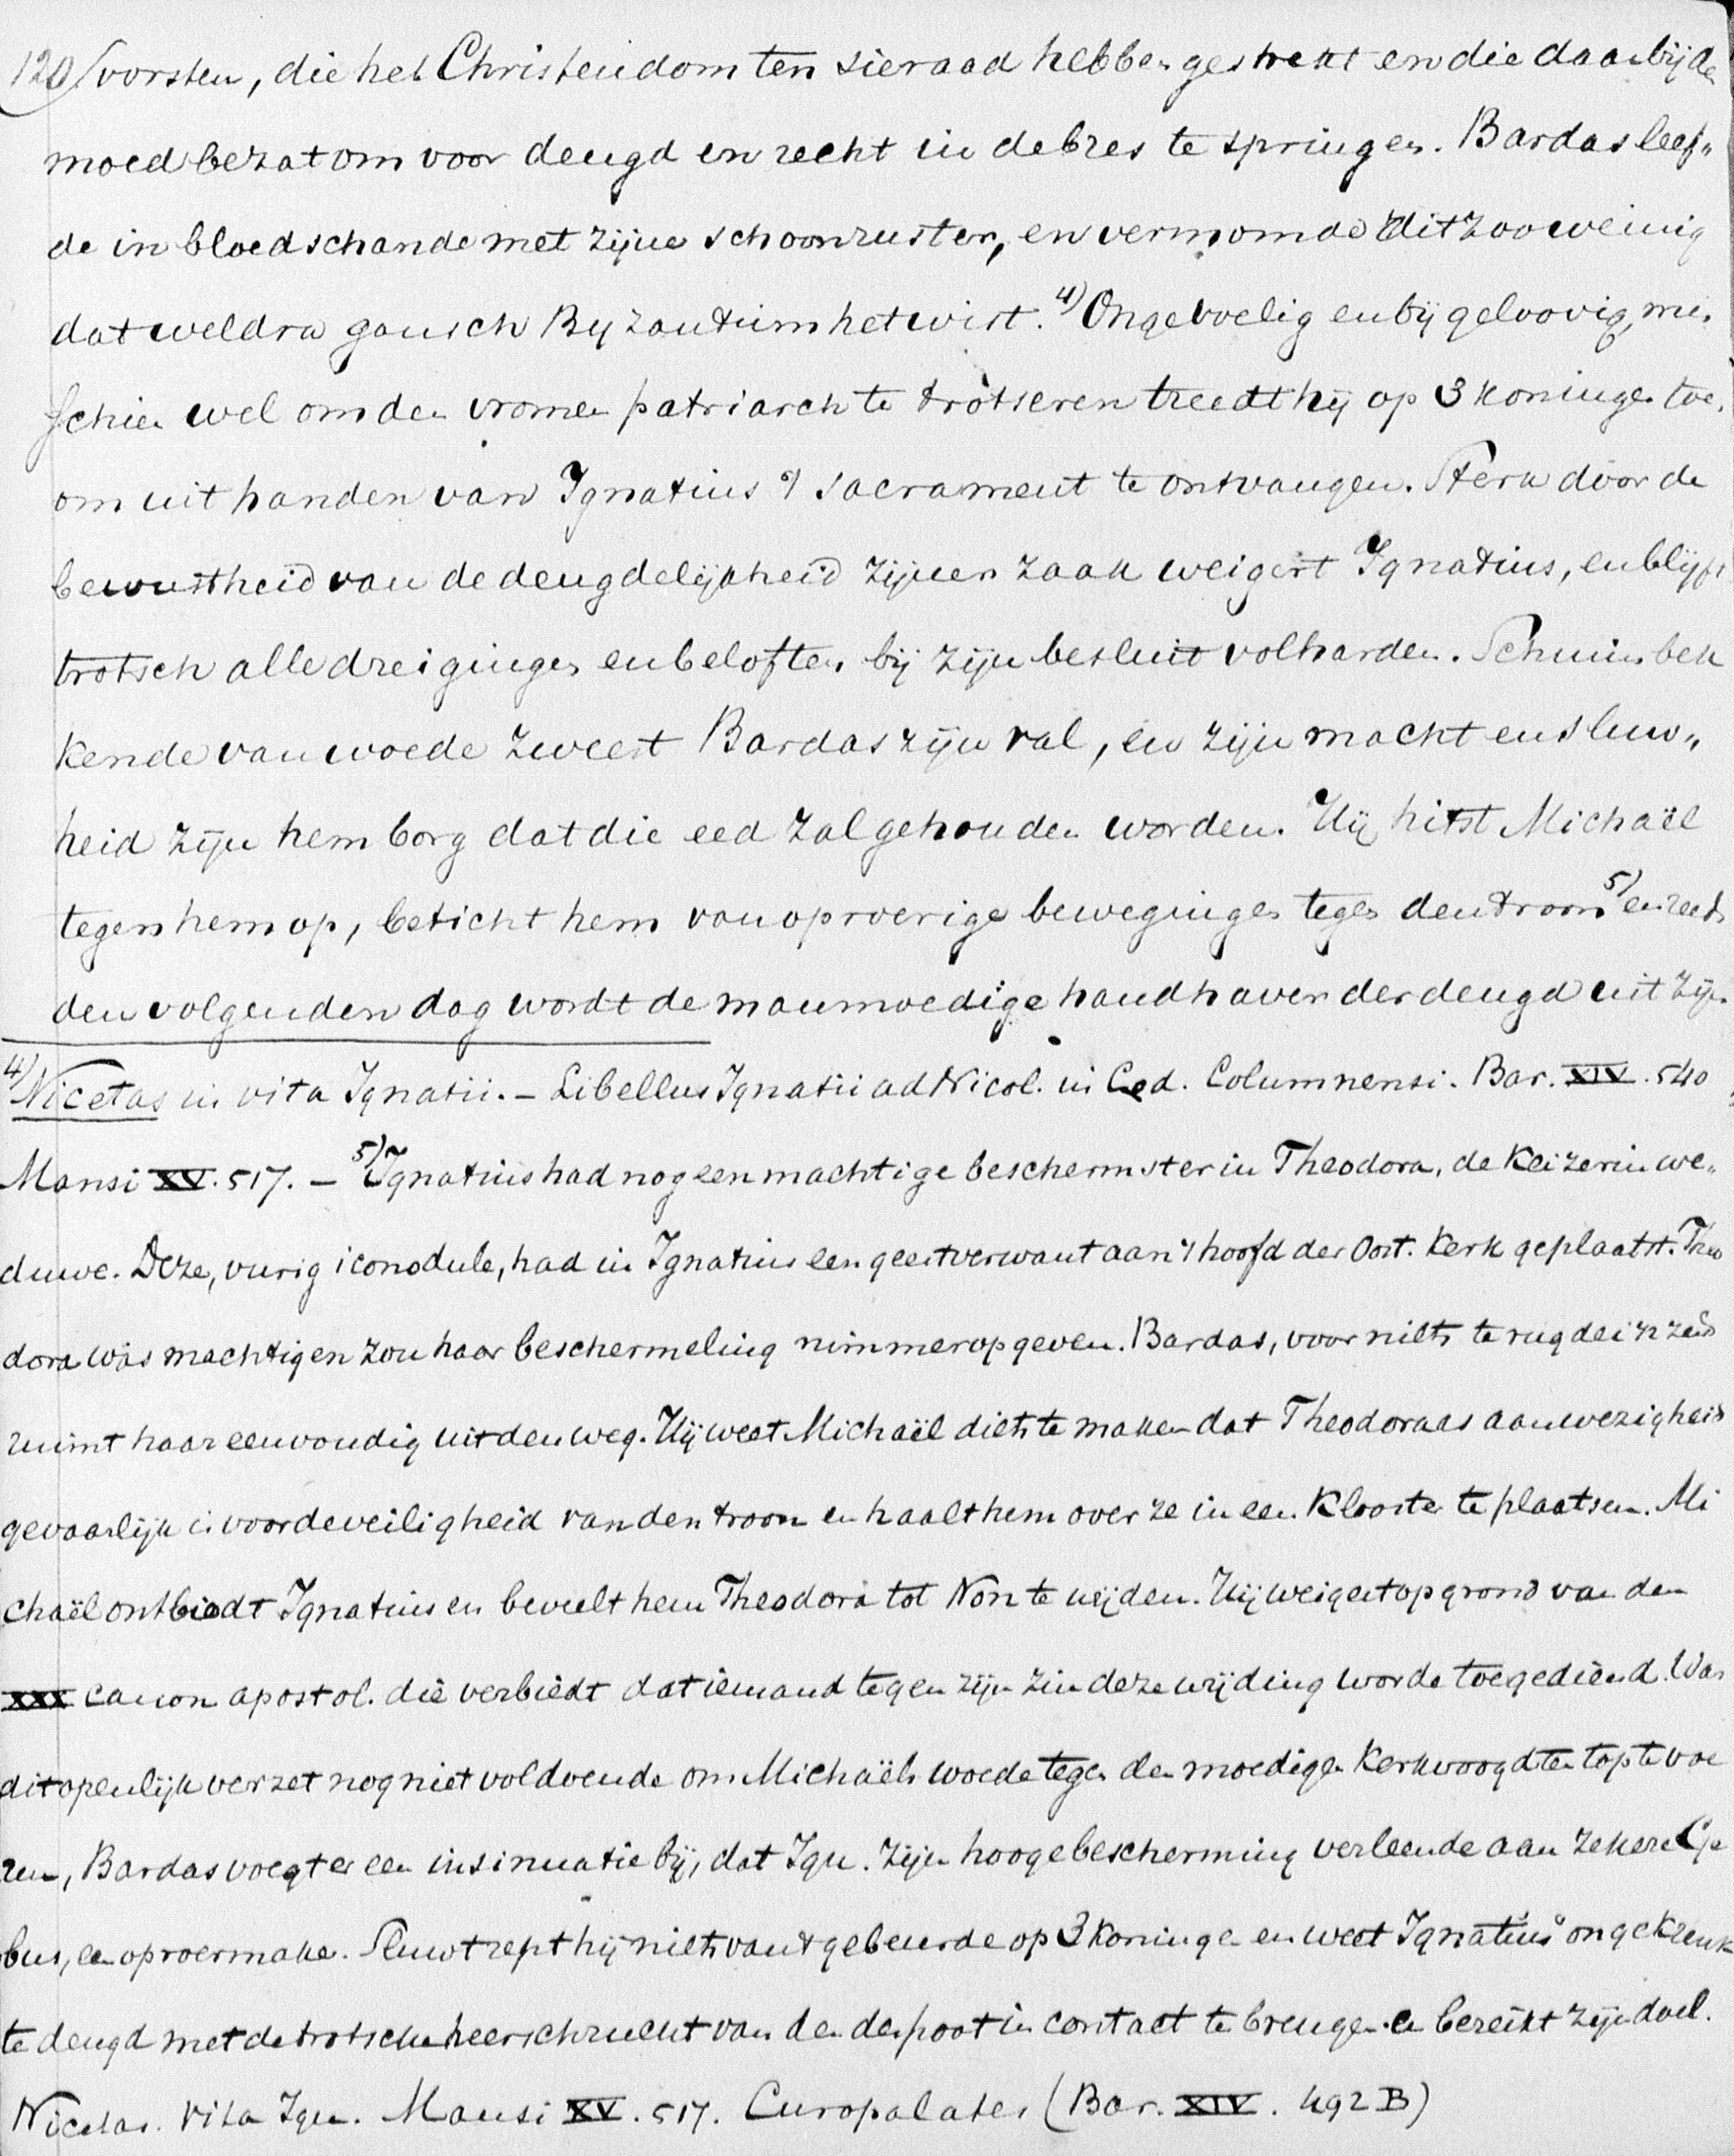 120/ vorsten, die het Christendom ten sieraad hebben gestrekt en die daarbij de
moed bezat om voor deugd en recht in de bres te springen. Bardas leef„
de in bloedschande met zijne schoonzuster, en vermomde dit zoo weinig
dat weldra gansch Byzantium het wist. 4) Ongevoelig en bijgeloovig, mis„
schien wel om den vromen patriarch te trotseren treedt hij op 3 koningen toe,
om uit handen van Ignatius 't sacrament te ontvangen. Sterk door de
bewustheid van de deugdelijkheid zijner zaak weigert Ignatius, en blijft
trotsch alle dreigingen en beloften bij zijn besluit volharden. Schuimbek
kende van woede zweert Bardas zijn val, en zijn macht en sluw„
heid zijn hem borg dat die eed zal gehouden worden. Hij hitst Michaël
tegen hem op, beticht hem van oproerige bewegingen tegen den troon 5) en reeds
den volgenden dag wordt de manmoedige handhaver der deugd uit zijn
4) Nicetas in vita Ignatii. – Libellus Ignatii ad Nicol. in Cod. Columnensi. Bar. XIV. 540
Mansi XV. 517. – 5) Ignatius had nog een machtige beschermster in Theodora, de Keizerin we„
duwe. Deze, vurig iconodule, had in Ignatius een geestverwant aan 't hoofd der Oost. Kerk geplaatst. Theo
dora was machtig en zou haar beschermeling nimmer opgeven. Bardas, voor niets terugdeinzend
ruimt haar eenvoudig uit den weg. Hij weet Michaël diets te maken dat Theodoraas aanwezigheid
gevaarlijk is voor de veiligheid van den troon en haalt hem over ze in een Klooster te plaatsen. Mi
chaël ontbiedt Ignatius en beveelt hem Theodora tot Non te wijden. Hij weigert op grond van den
XXX canon apostol. die verbiedt dat iemand tegen zijn zin deze wijding worde toegediend. Was
dit openlijk verzet nog niet voldoende om Michaëls woede tegen den moedigen Kerkvoogd ten top te voe
ren, Bardas voegt er een insinuatie bij, dat Ign. zijn hooge bescherming verleende aan zekere Ge
bus, een oproermaker. Sluw rept hij niets van 't gebeurde op 3 Koningen en weet Ignatius' ongekrenk
te deugd met de trotsche heerschzucht van den despoot in contact te brengen en bereikt zijn doel.
Nicetas. Vita Ign. Mansi XV. 517. Curopalates (Bar. XIV. 492 B)